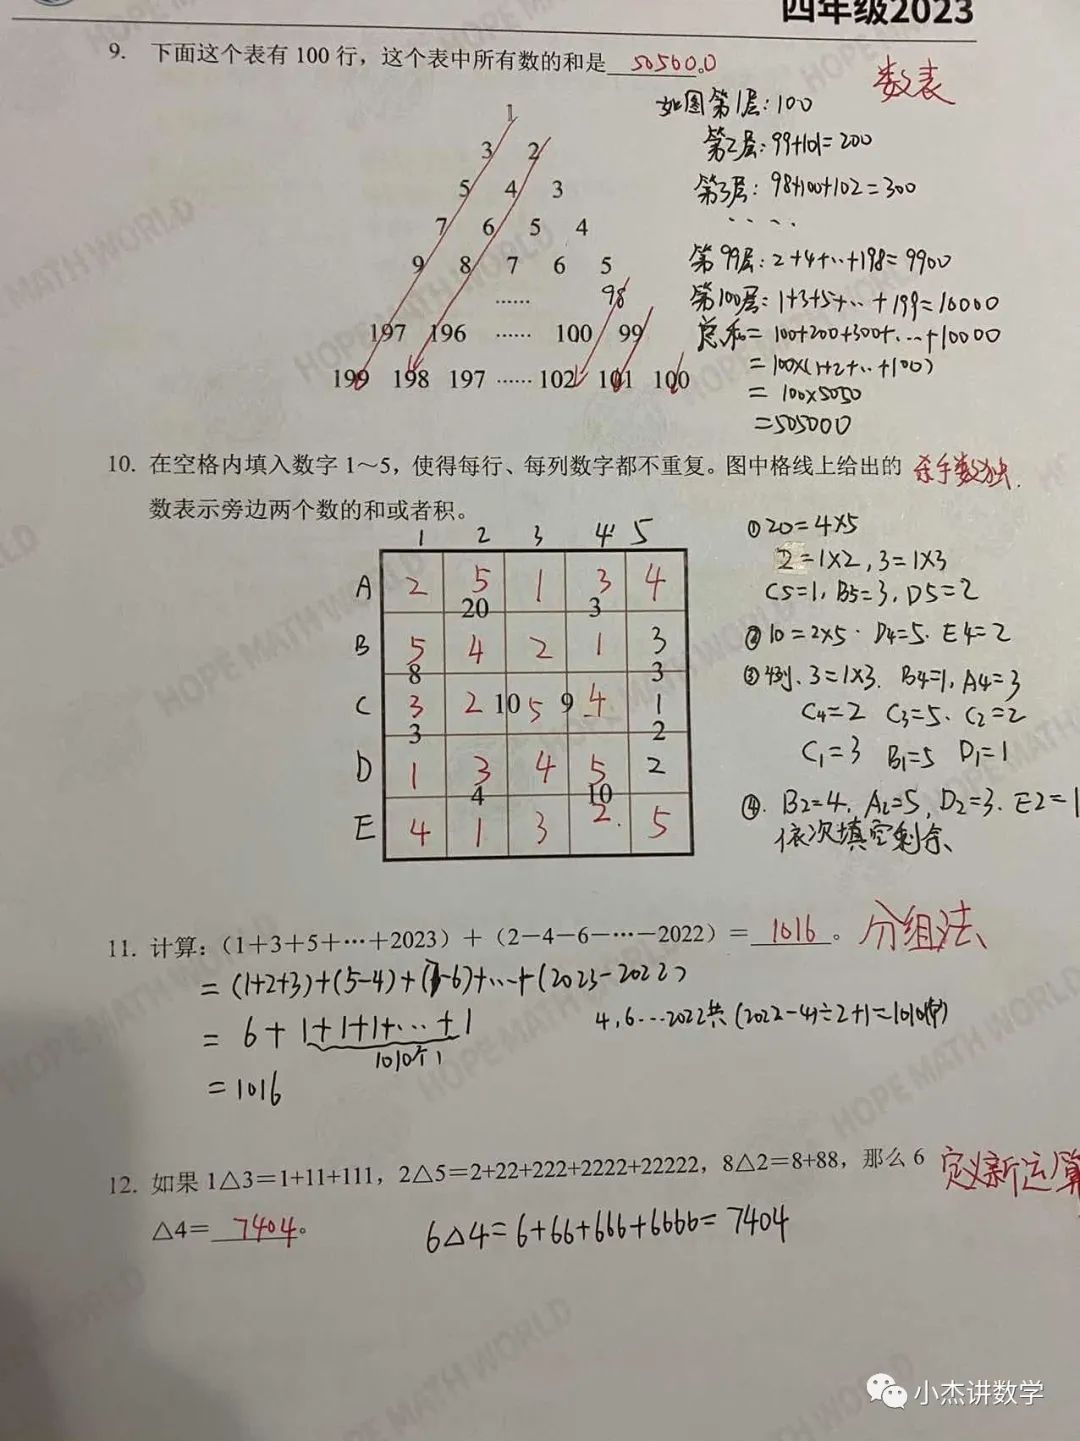 四年级2023
9. 下面这个表有 100 行，这个表中所有数的和是 505000。
数表
1
3 2
5 4 3
7 6 5 4
9 8 7 6 5
…… 98
197 196 …… 100 99
199 198 197 …… 102 101 100
如图第1层：100
第2层：99+101=200
第3层：98+100+102=300
....
第99层：2+4+…+198=9900
第100层：1+3+5+…+199=10000
总和=100+200+300+…+10000
=100×(1+2+…+100)
=100×5050
=505000
10. 在空格内填入数字 1～5，使得每行、每列数字都不重复。图中格线上给出的
杀手数独.
数表示旁边两个数的和或者积。
1 2 3 4 5
A 2 5 1 3 4
20 3
B 5 4 2 1 3
8 3
C 3 2 10 5 9 4 1
3 2
D 1 3 4 5 2
4 10
E 4 1 3 2. 5
①20=4×5
2=1×2, 3=1×3
C5=1, B5=3, D5=2
②10=2×5. D4=5. E4=2
③4列、3=1×3. B4=1, A4=3
C4=2 C3=5. C2=2
C1=3 B1=5 D1=1
④. B2=4, A2=5, D2=3. E2=1
依次填空剩余
11. 计算：（1＋3＋5＋…＋2023）＋（2－4－6－…－2022）＝ 1016 。
分组法
=(1+2+3)+(5-4)+(7-6)+…+(2023-2022)
=6+1+1+1+…+1
1010个1
4,6…2022共(2022-4)÷2+1=1010(个)
=1016
12. 如果 1△3=1+11+111，2△5=2+22+222+2222+22222，8△2=8+88，那么 6
定义新运算
△4= 7404。
6△4=6+66+666+6666=7404
小杰讲数学
HOPE MATH WORLD